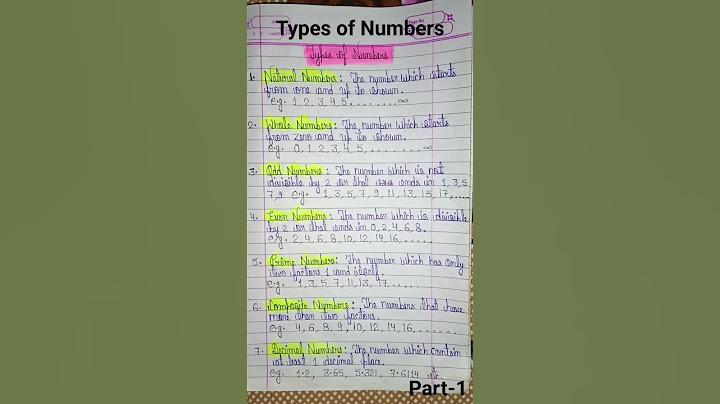 Types of Numbers
Types of Numbers
1. Natural Numbers: The number which starts
from one and up to shown.
e.g. 1, 2, 3, 4, 5........∞
2. Whole Numbers: The number which starts
from zero and up to shown.
e.g. 0, 1, 2, 3, 4, 5, ........∞
3. Odd Numbers: The number which is not
divisible by 2 or that ends in 1, 3, 5
7, 9 e.g. 1, 3, 5, 7, 9, 11, 13, 15, 17, ....
4. Even Numbers: The number which is divisible
by 2 or that ends in 0, 2, 4, 6, 8.
e.g. 2, 4, 6, 8, 10, 12, 14, 16, .....
5. Prime Numbers: The number which has only
two factors 1 and itself.
e.g. 1, 3, 5, 7, 11, 13, 17.....
6. Composite Numbers: The numbers that have
more than two factors.
e.g. 4, 6, 8, 9, 10, 12, 14, 16, ......
7. Decimal Numbers: The number which contain
at least 1 decimal place.
e.g. 1.2, 3.65, 5.321, 7.6114 etc.
Part-1